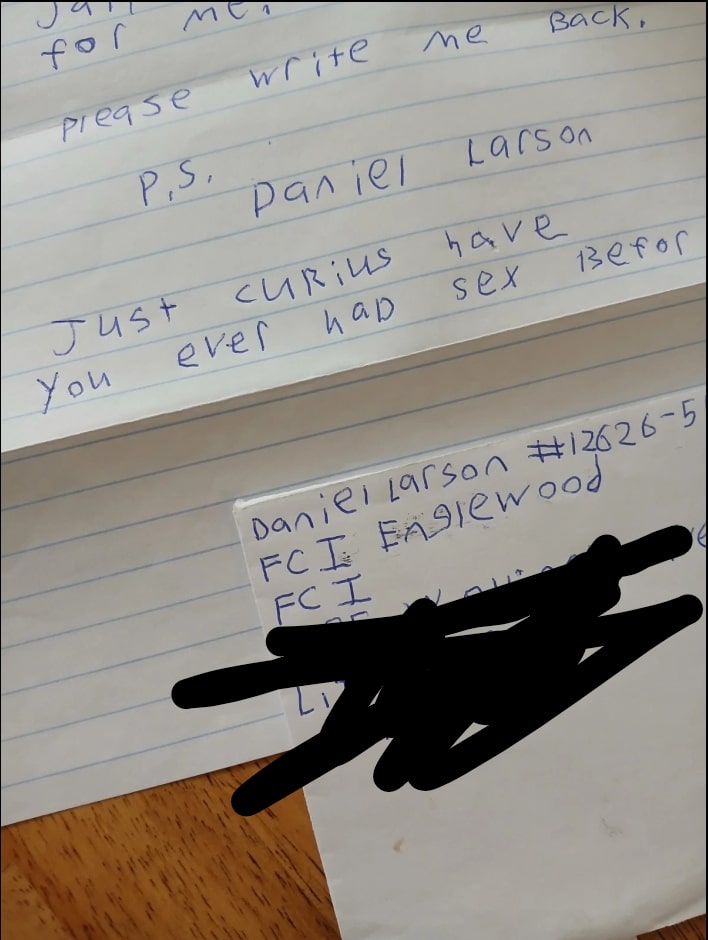 for me.
please write me Back.
P.S.
Daniel Larson
Just cuRius have
you ever haD sex Befor
Daniel Larson #12626-5
FCI Englewood
FCI